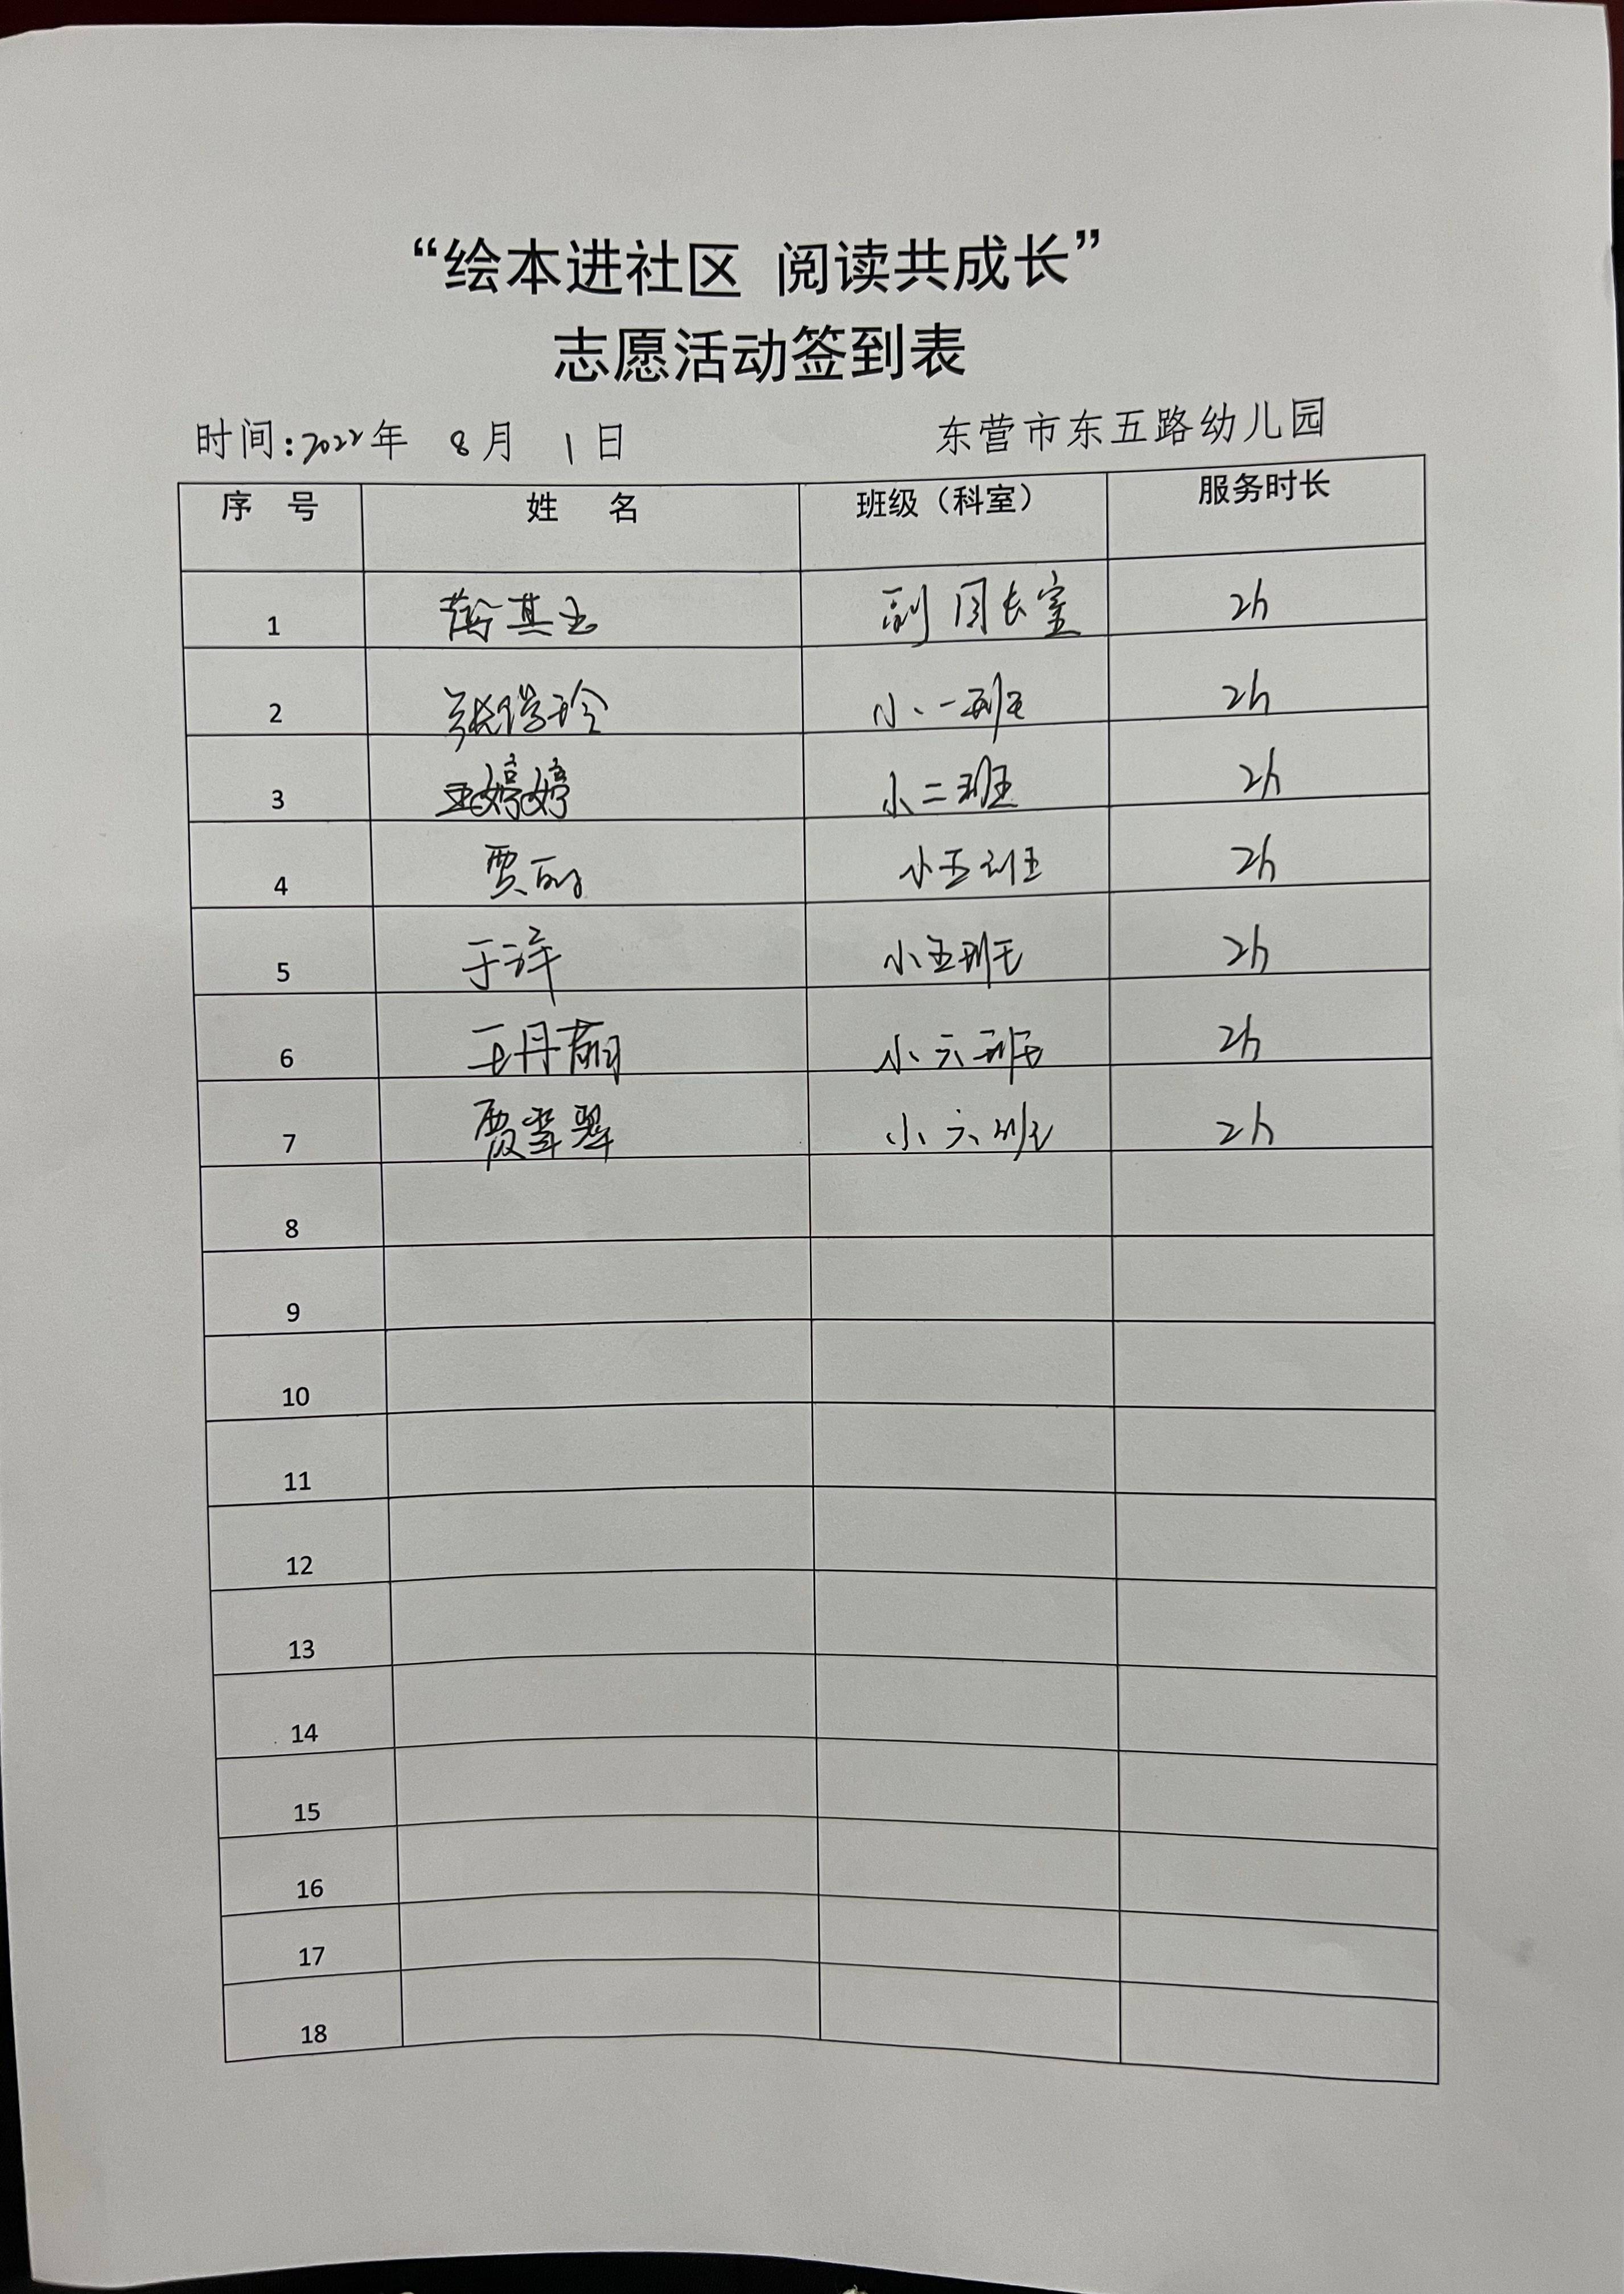 “绘本进社区 阅读共成长”
志愿活动签到表
时间:2022年 8月 1日 东营市东五路幼儿园
序 号 姓 名 班级（科室） 服务时长
1 副园长室 2h
2 小一班 2h
3 王婷婷 小二班 2h
4 贾丽 小五班 2h
5 于洋 小五班 2h
6 王丹丽 小六班 2h
7 小六班 2h
8
9
10
11
12
13
14
15
16
17
18